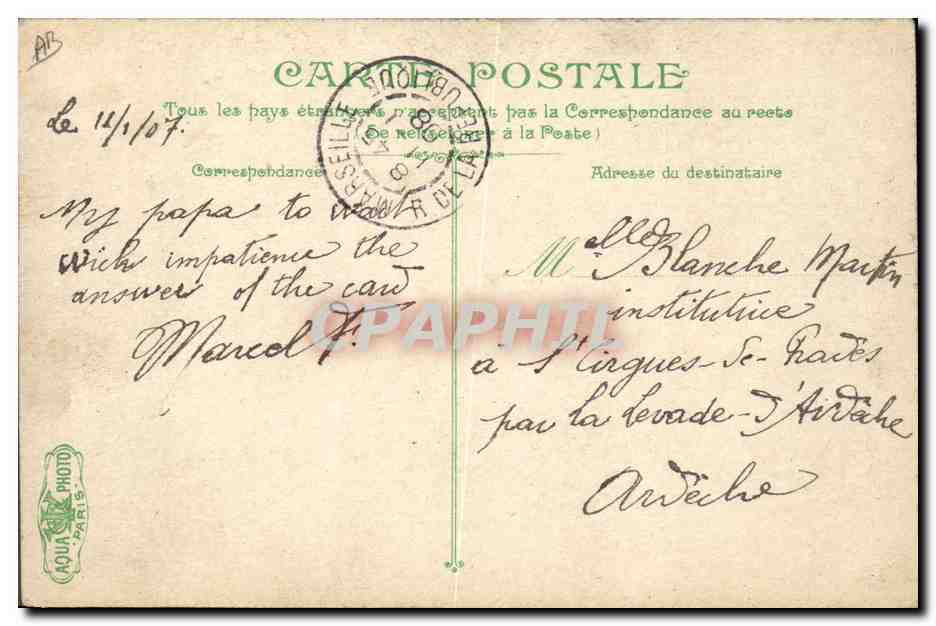 AB
CARTE POSTALE
Tous les pays étrangers n'acceptent pas la Correspondance au recto
(Se renseigner à la Poste)
MARSEILLE R DE LA REPUBLIQUE
Le 12/1/07.
Correspondance
My papa to wait
wich impatience the
answer of the card
Marcel F.
Adresse du destinataire
Melle Blanche Martin
institutrice
à St Cirgues-de-Prades
par La Levade-d'Ardèche
Ardèche
CPAPHIL
AQUA PHOTO
PARIS